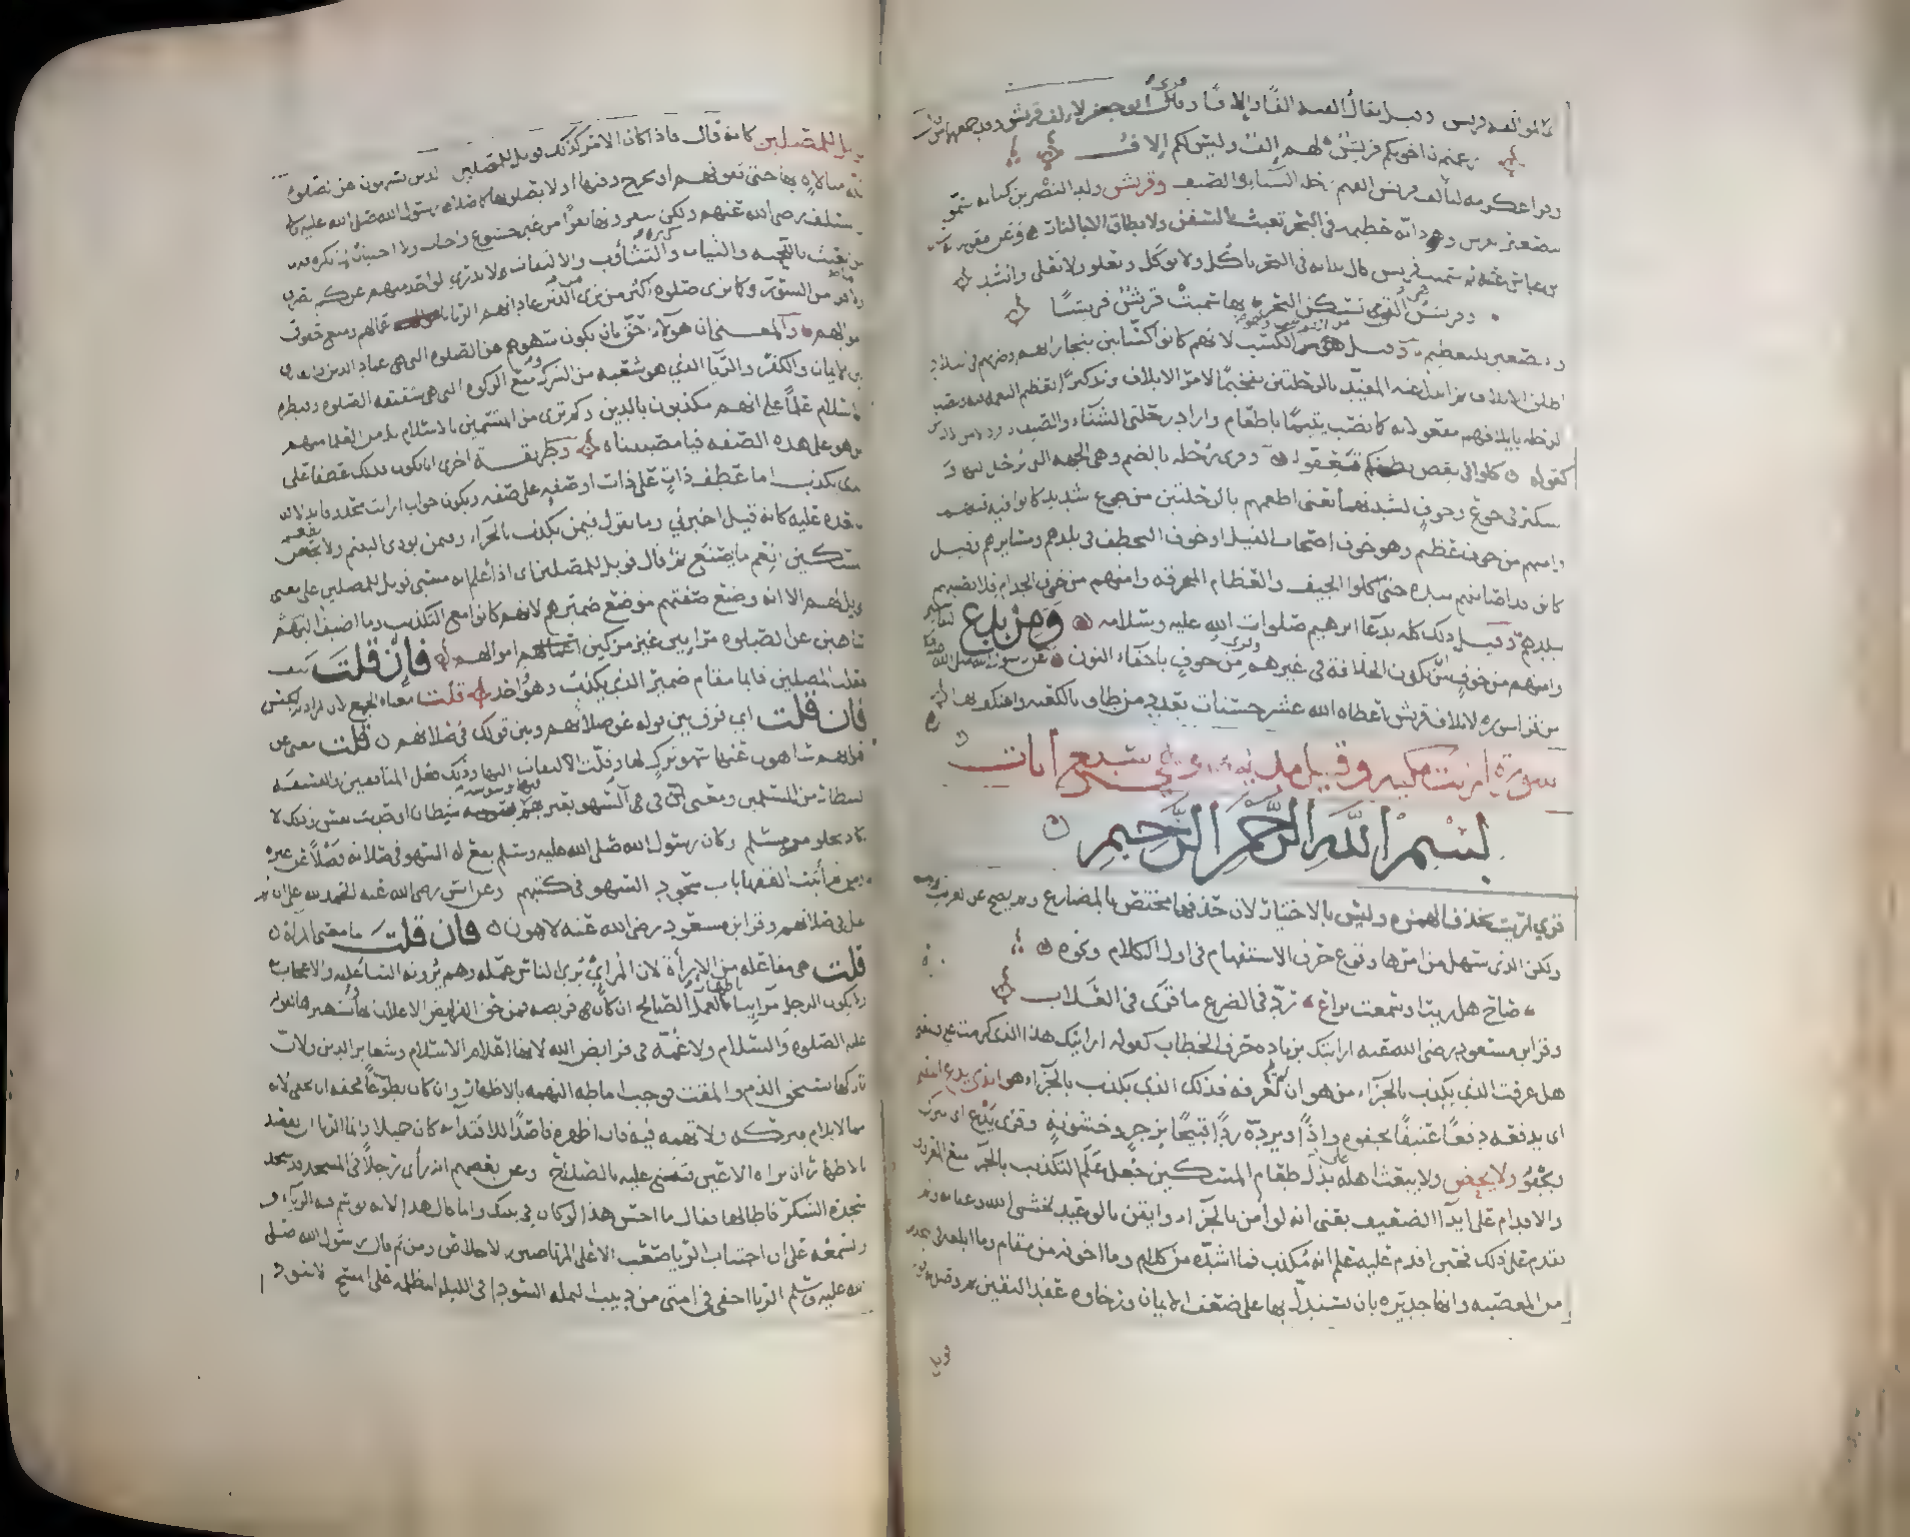 زعمتم ان اخوتكم قريش لهم إلف وليس لكم إلاف
وقرا عكرمه ليالف قريش الفهم رحلة الشتاء والصيف وقريش ولد النضر بن كنانه سموا
بتصغير القرش وهو دابه عظيمه فى البحر تعبث بالسفن ولا تطاق الا بالنار وعن معويه
ابن عباس بم سميت قريش قال بدابه فى البحر تاكل ولا توكل وتعلو ولا تعلى وانشد
وقريش هى التى تسكن البحر بها سميت قريش قريشا
والتصغير للتعظيم وقيل من القرش وهو الكسب لانهم كانوا كسابين بتجاراتهم وضربهم فى البلاد
اطلق الايلاف ثم ابدل عنه المقيد بالرحلتين تفخيما لامر الايلاف وتذكيرا بعظيم النعمه فيه ونصب
الرحله بايلافهم مفعولا به كما نصب يتيما باطعام واراد رحلتى الشتاء والصيف
كقوله كلوا فى بعض بطنكم تعفوا وقرى رحله بالضم وهى الجهه التى يرحل اليها
والتنكير فى جوع وخوف لشدتهما يعنى اطعمهم بالرحلتين من جوع شديد كانوا فيه قبلهما
وامنهم من خوف عظيم وهو خوف اصحاب الفيل او خوف التخطف فى بلدهم ومسايرهم وقيل
كانوا قد اصابتهم شده حتى اكلوا الجيف والعظام المحرقه وامنهم من خوف الجذام فلا يصيبهم
ببلدهم وقيل ذلك كله بدعا ابرهيم صلوات الله عليه وسلامه ومن بدع
وامنهم من خوف ان تكون الخلافة فى غيرهم وقرى من خوف باخفاء النون عن رسول الله صلى الله
من قرا سورة لايلاف قريش اعطاه الله عشر حسنات بعدد من طاف بالكعبه واعتكف بها
سورة ارايت مكيه وقيل مدنيه وهى سبع ايات
بسم الله الرحمن الرحيم
قرى اريت بحذف الهمزه وليس بالاختيار لان حذفها مختص بالمضارع ولم يصح عن العرب ريت
ولكن الذى سهل من امرها وقوع حرف الاستفهام فى اول الكلام ونحوه
صاح هل ريت او سمعت براع رد فى الضرع ما قرى فى العلاب
وقرا ابن مسعود رضى الله عنه ارايتك بزياده حرف الخطاب كقوله ارايتك هذا الذى كرمت على والمعنى
هل عرفت الذى يكذب بالجزاء من هو ان لم تعرفه فذلك الذى يكذب بالجزاء هو الذى يدع اليتيم
اى يدفعه دفعا عنيفا بجفوه واذى ويرده ردا قبيحا بزجر وخشونة وقرى يدع اى يترك
ويجفو ولا يحض ولا يبعث اهله على بذل طعام المسكين جعل علم التكذيب بالجزاء منع المعروف
والاقدام على ايذاء الضعيف يعنى انه لو امن بالجزاء وايقن بالوعيد لخشى الله وعقابه ولم
يقدم على ذلك فحين اقدم عليه علم انه مكذب فما اشده من كلام وما اخوفه من مقام وما ابلغه فى التحذير
من المعصيه وانها جديره بان يستدل بها على ضعف الايمان ورخاوه عقد اليقين ثم وصل به قوله
فويل
فويل للمصلين كانه قال فاذا كان الامر كذلك فويل للمصلين الذين يسهون عن الصلوه
قلة مبالاه بها حتى تفوتهم او يخرج وقتها او لا يصلونها كما صلاها رسول الله صلى الله عليه وسلم
والسلف رضى الله عنهم ولكن ينقرونها نقرا من غير خشوع واخبات ولا اجتناب لما يكره فيها
من العبث باللحيه والثياب وكثره التثاوب والالتفات ولا يدرى الواحد منهم عن كم انصرف
ولا ما قرا من السور وكما ترى صلوة اكثر من ترى الذين عادتهم الريا باعمالهم ومنع حقوق
اموالهم والمعنى ان هولاء احق بان يكون سهوهم عن الصلوه التى هى عماد الدين والفارق
بين الايمان والكفر والريا الذى هو شعبه من الشرك ومنع الزكوه التى هى شقيقه الصلوه وقنطره
الاسلام علما على انهم مكذبون بالدين وكم ترى من المتسمين بالاسلام بل من العلما منهم
من هو على هذه الصفه فيا مصيبتاه وطريقة اخرى ان يكون فذلك عطفا على
الذى يكذب اما عطف ذات على ذات او صفه على صفه ويكون جواب ارايت محذوفا لدلاله
ما بعده عليه كانه قيل اخبرنى وما تقول فيمن يكذب بالجزاء وفيمن يوذى اليتيم ولا يطعم
المسكين انعم ما يصنع ثم قال فويل للمصلين اى اذا علم انه مسى فويل للمصلين على معنى
فويل لهم الا انه وضع صفتهم موضع ضميرهم لانهم كانوا مع التكذيب وما اضيف اليهم
ساهين عن الصلوه مرايين غير مزكين اموالهم فان قلت كيف
جعلت المصلين قايما مقام ضمير الذى يكذب وهو واحد قلت معناه الجمع لان المراد به الجنس
فان قلت اى فرق بين قوله عن صلاتهم وبين قولك فى صلاتهم قلت معنى عن
انهم ساهون عنها سهو ترك لها وقلة الالتفات اليها وذلك فعل المنافقين والفسقه
الشطار من المسلمين ومعنى فى ان السهو يعتريهم فيها بوسوسه شيطان او حديث نفس وذلك لا
يكاد يخلو منه مسلم وكان رسول الله صلى الله عليه وسلم يقع له السهو فى صلاته فضلا عن غيره
ومن ثم اثبت الفقها باب سجود السهو فى كتبهم وعن انس رضى الله عنه الحمد لله على ان لم
يقل فى صلاتهم وقرا ابن مسعود رضى الله عنه لاهون فان قلت ما معنى المراة
قلت هى مفاعله من الاراة لان المرائ يرى الناس عمله وهم يرونه الثنا عليه والاعجاب
ولا يكون الرجل مرايا باظهار العمل الصالح ان كان فريضه فمن حق الفرايض الاعلان بها وتشهيرها لقوله
عليه الصلوه والسلام ولا غمة فى فرايض الله لانها اعلام الاسلام وشعاير الدين ولان
تاركها يستحق الذم والمقت فوجب اماطه التهمه بالاظهار وان كان تطوعا فحقه ان يخفى لانه
مما لا يلام بتركه ولا تهمه فيه فان اظهره قاصدا للاقتدا به كان جميلا وانما الريا ان يقصد
بالاظهار ان تراه الاعين فيثنى عليه بالصلاح وعن بعضهم انه رأى رجلا فى المسجد قد سجد
سجدة الشكر فاطالها فقال ما احسن هذا لو كان فى بيتك وانما قال هذا لانه توسم فيه الرياء و
السمعه على ان اجتناب الريا صعب الا على المرتاضين بالاخلاص ومن ثم قال رسول الله صلى
الله عليه وسلم الريا اخفى فى امتى من دبيب النمله السودا فى الليله المظلمه على المسح الاسود